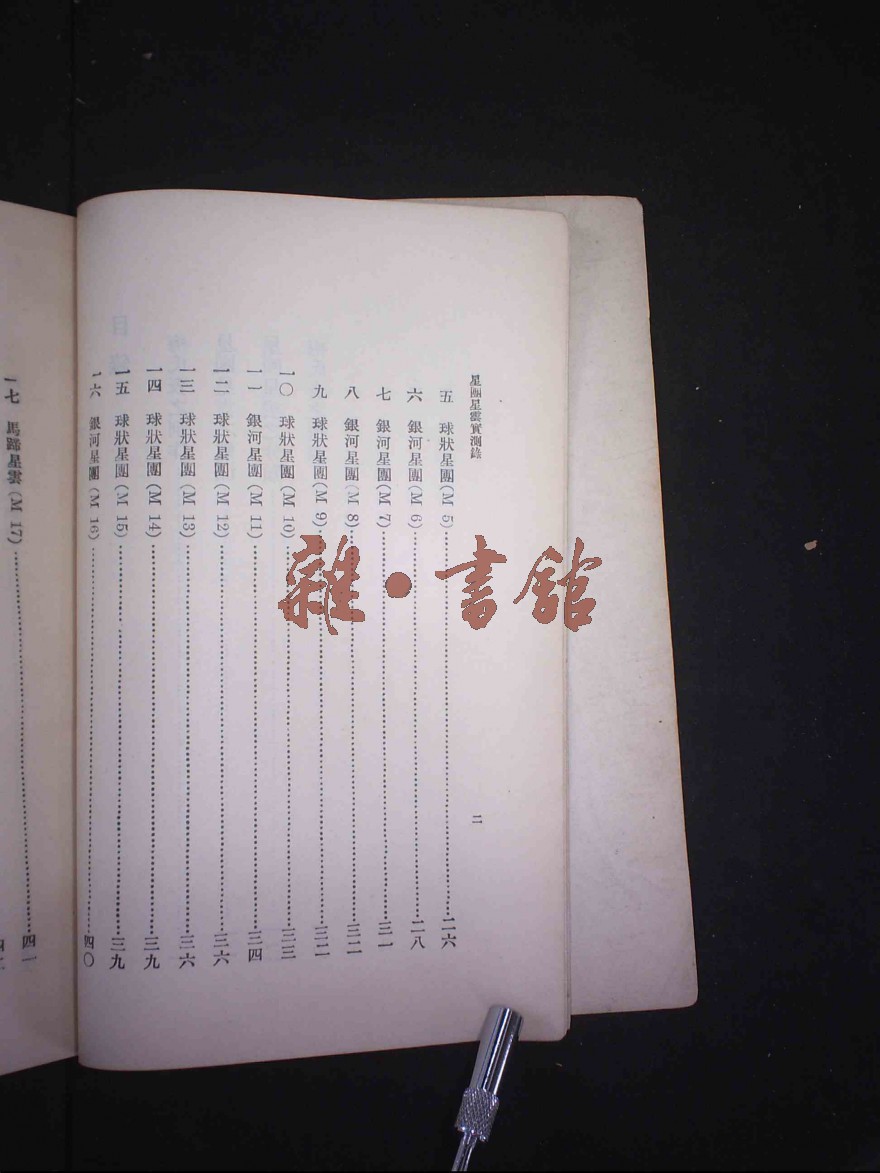 星團星雲實測錄
二
五 球狀星團(M 5)……二六
六 銀河星團(M 6)……二八
七 銀河星團(M 7)……三一
八 銀河星團(M 8)……三二
九 球狀星團(M 9)……三二
一〇 球狀星團(M 10)……三三
一一 銀河星團(M 11)……三四
一二 球狀星團(M 12)……三六
一三 球狀星團(M 13)……三六
一四 球狀星團(M 14)……三九
一五 球狀星團(M 15)……三九
一六 銀河星團(M 16)……四〇
一七 馬蹄星雲(M 17)……四一
雜·書館